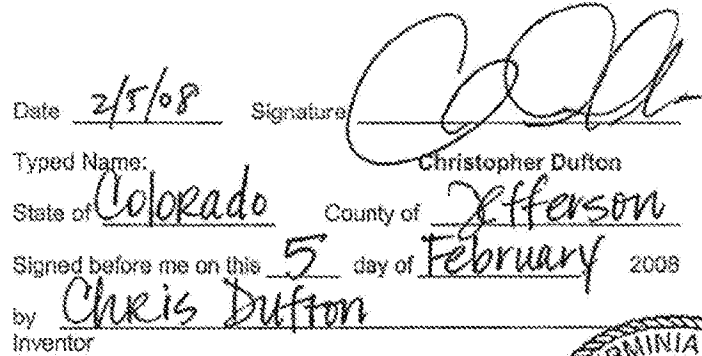 Date 2/5/08 Signature
Typed Name: Christopher Dufton
State of Colorado County of Jefferson
Signed before me on this 5 day of February 2008
by Chris Dufton
Inventor